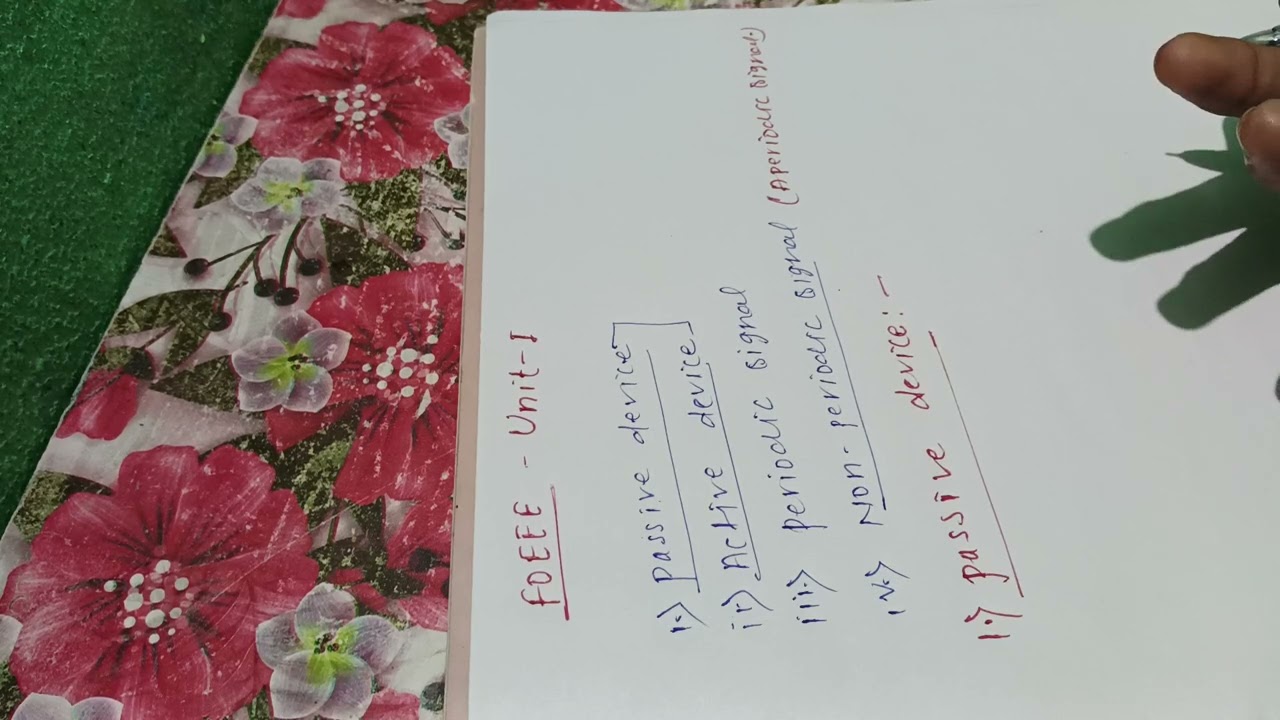 FOEEE - Unit-I
i.) passive device
ii) Active device
iii) periodic signal
iv.) Non-periodic signal (Aperiodic signal.)
i.) passive device:-